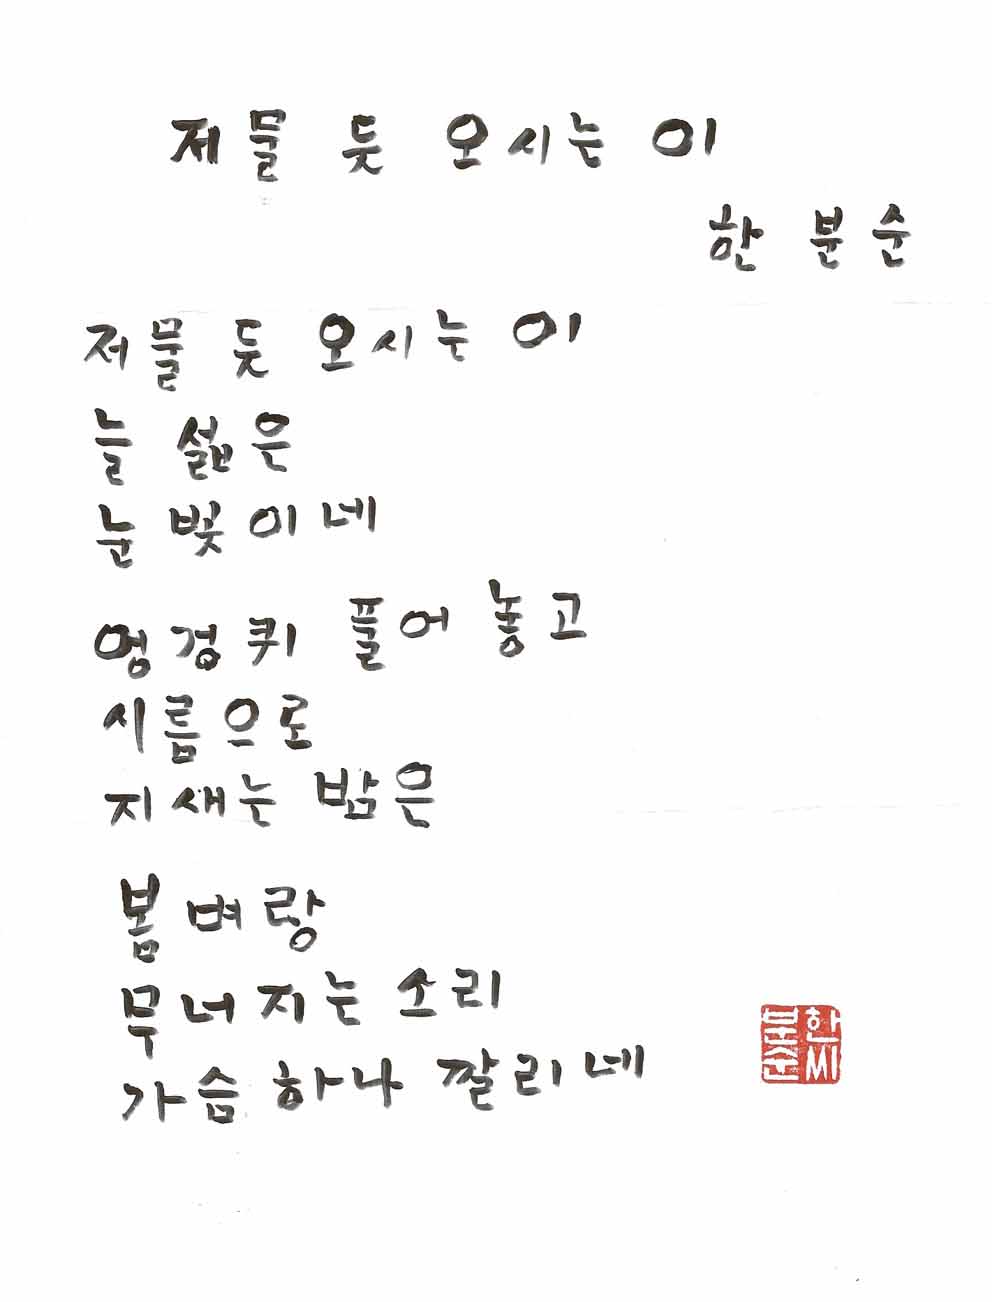 저물 듯 오시는 이
한분순
저물 듯 오시는 이
늘 섧은
눈빛이네
엉겅퀴 풀어 놓고
시름으로
지새는 밤은
봄벼랑
무너지는 소리
가슴 하나 깔리네
한씨
분순